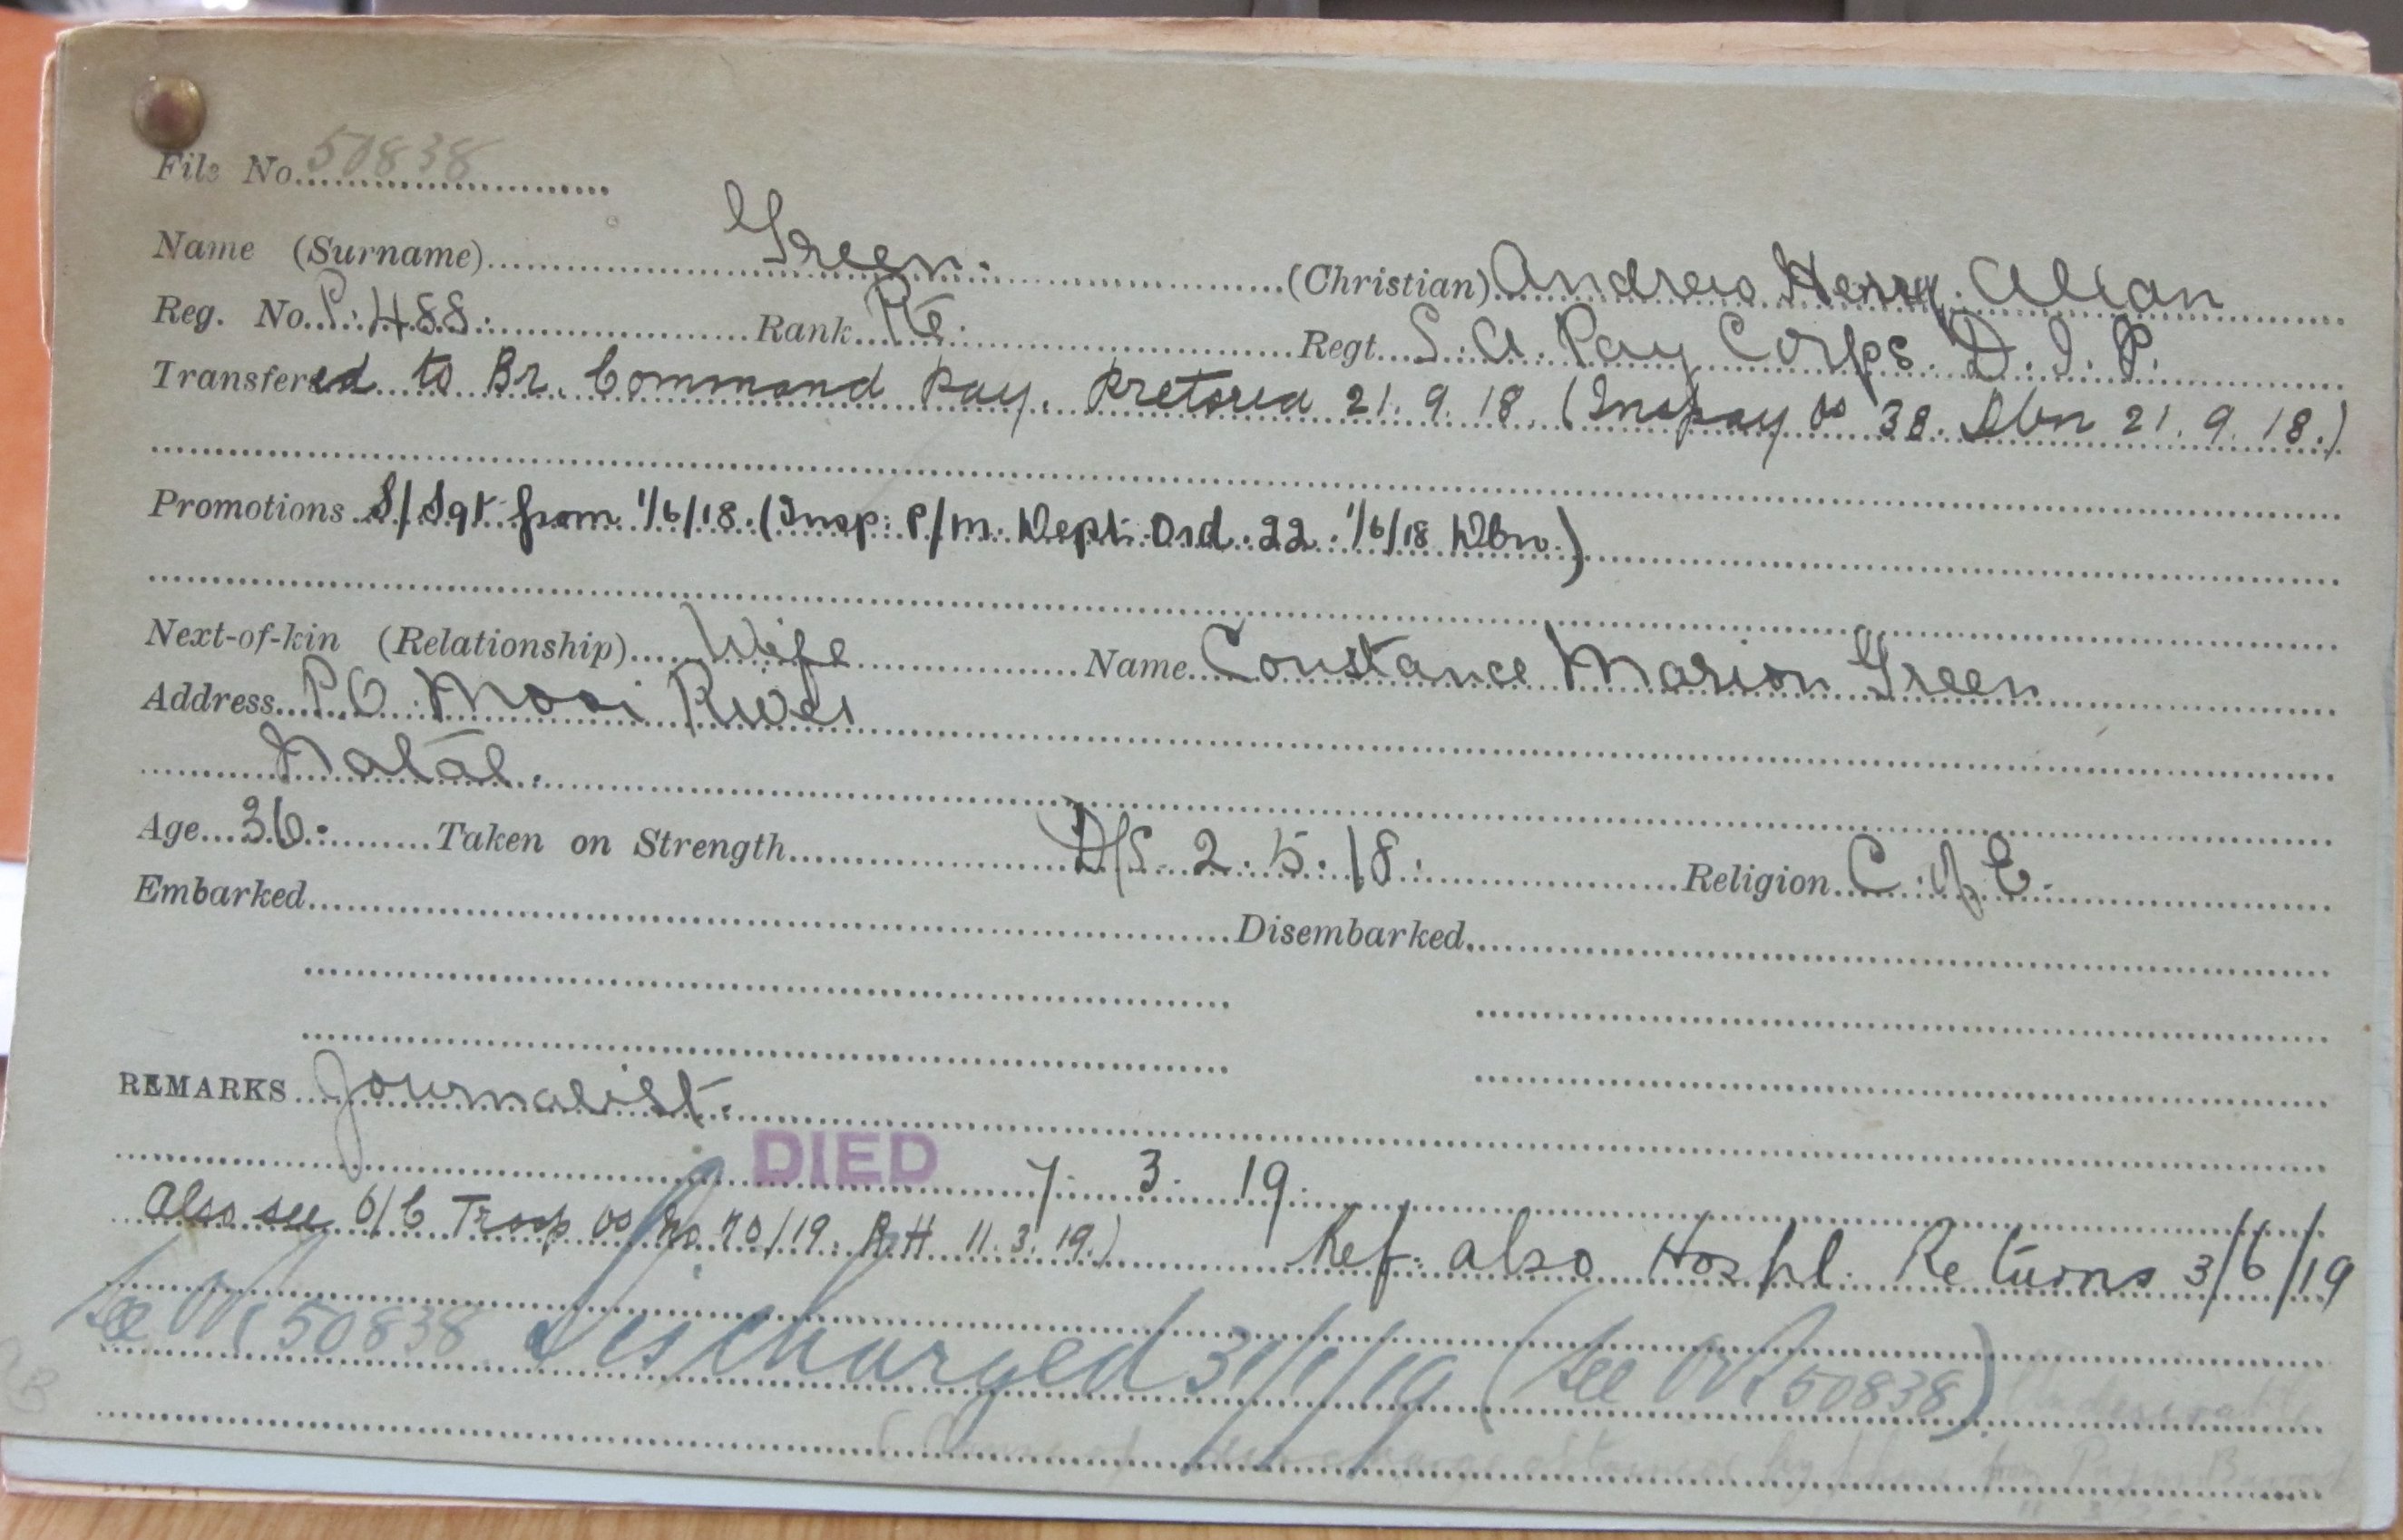 File No. 50838
Name (Surname) Green. (Christian) Andrew Henry Allan
Reg. No. P. 488. Rank Pte. Regt. S. A. Pay Corps. D. I. P.
Transfered to Br. Command Pay. Pretoria 21. 9. 18. (Inspay OO 38. Dbn 21. 9. 18.)
Promotions S/Sgt from 1/6/18. (Insp: P/M. Dept. Ord. 22. 1/6/18 Dbn.)
Next-of-kin (Relationship) Wife Name Constance Marion Green
Address P.O. Mooi River
Natal.
Age 36. Taken on Strength D/S 2. 5. 18. Religion C. of E.
Embarked Disembarked
REMARKS Journalist.
DIED 7. 3. 19.
Also see O/C Troop OO No. 70/19. R.H. 11. 3. 19.) Ref. also Hospl. Returns 3/6/19
See OR 50838 Discharged 31/1/19 (See OR 50838)